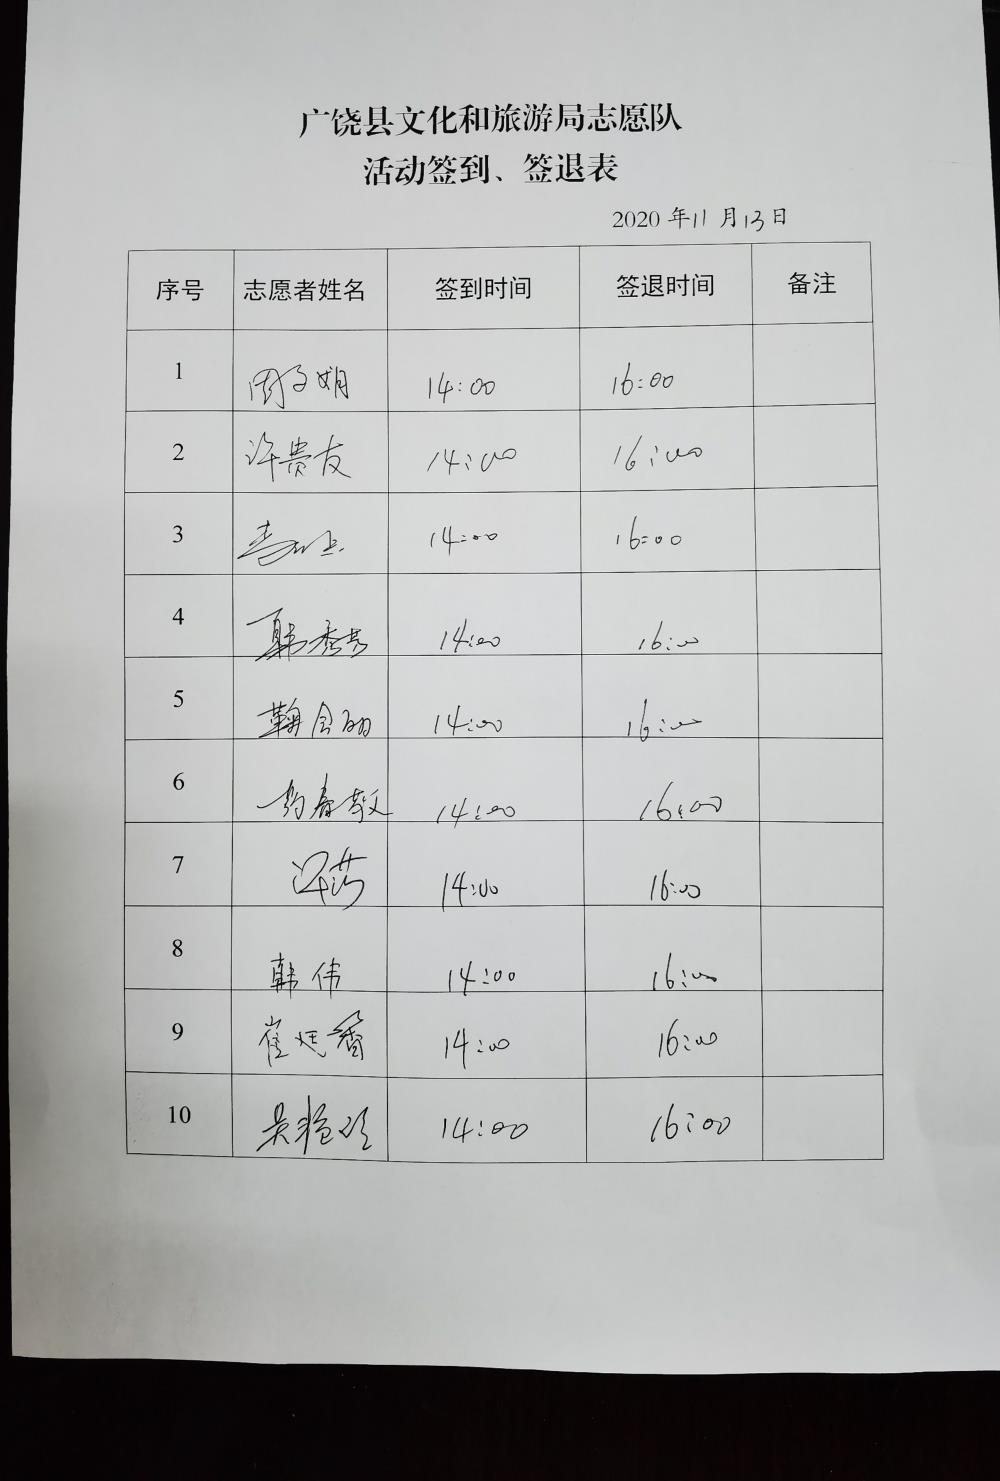 广饶县文化和旅游局志愿队
活动签到、签退表
2020 年 11 月 13 日
序号 志愿者姓名 签到时间 签退时间 备注
1 周子娟 14:00 16:00
2 许贵友 14:00 16:00
3 14:00 16:00
4 韩秀芳 14:00 16:00
5 鞠会丽 14:00 16:00
6 春敬 14:00 16:00
7 莎 14:00 16:00
8 韩伟 14:00 16:00
9 崔廷香 14:00 16:00
10 吴艳 14:00 16:00